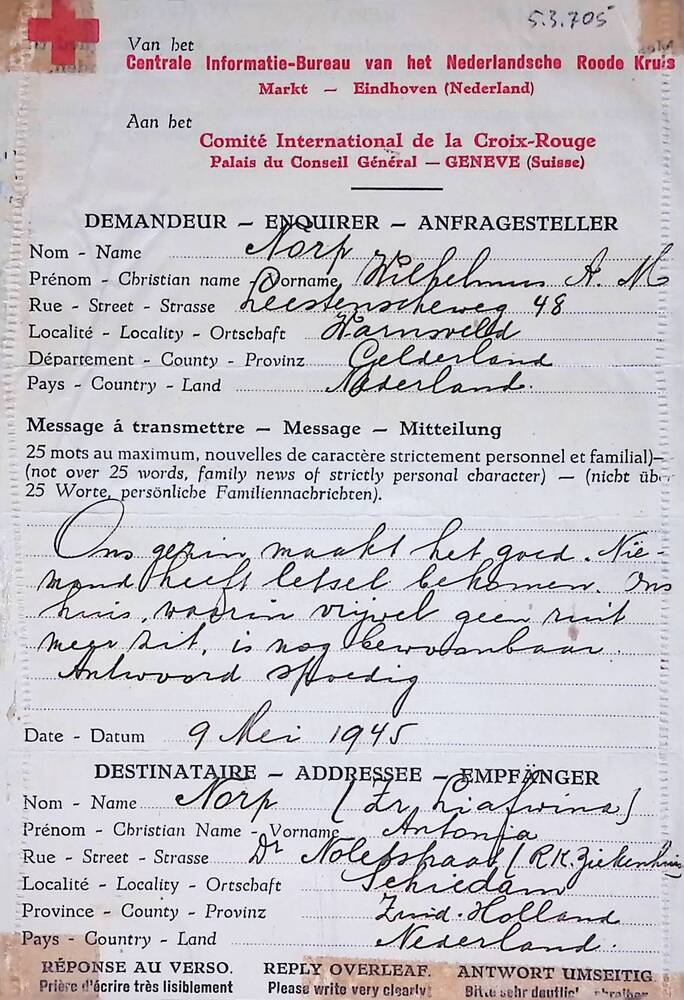 5.3.705
Van het
Centrale Informatie-Bureau van het Nederlandsche Roode Kruis
Markt — Eindhoven (Nederland)
Aan het
Comité International de la Croix-Rouge
Palais du Conseil Général — GENEVE (Suisse)
DEMANDEUR — ENQUIRER — ANFRAGESTELLER
Nom - Name Norp
Prénom - Christian name - Vorname Wilhelmus A. M
Rue - Street - Strasse Leestenscheweg 48
Localité - Locality - Ortschaft Warnsveld
Département - County - Provinz Gelderland
Pays - Country - Land Nederland.
Message á transmettre — Message — Mitteilung
25 mots au maximum, nouvelles de caractère strictement personnel et familial)—
(not over 25 words, family news of strictly personal character) — (nicht über
25 Worte, persönliche Familiennachrichten).
Ons gezin maakt het goed. Nie-
mand heeft letsel bekomen. Ons
huis, waarin vrijwel geen ruit
meer zit, is nog bewoonbaar.
Antwoord spoedig
Date - Datum 9 Mei 1945
DESTINATAIRE — ADDRESSEE — EMPFÄNGER
Nom - Name Norp (Zr Liafwina)
Prénom - Christian Name - Vorname Antonja
Rue - Street - Strasse Dr Noletstraat (R.K. Ziekenhuis
Localité - Locality - Ortschaft Schiedam
Province - County - Provinz Zuid-Holland
Pays - Country - Land Nederland.
RÉPONSE AU VERSO. REPLY OVERLEAF. ANTWORT UMSEITIG
Prière d'écrire très lisiblement Please write very clearly Bitte sehr deutlich schreiben